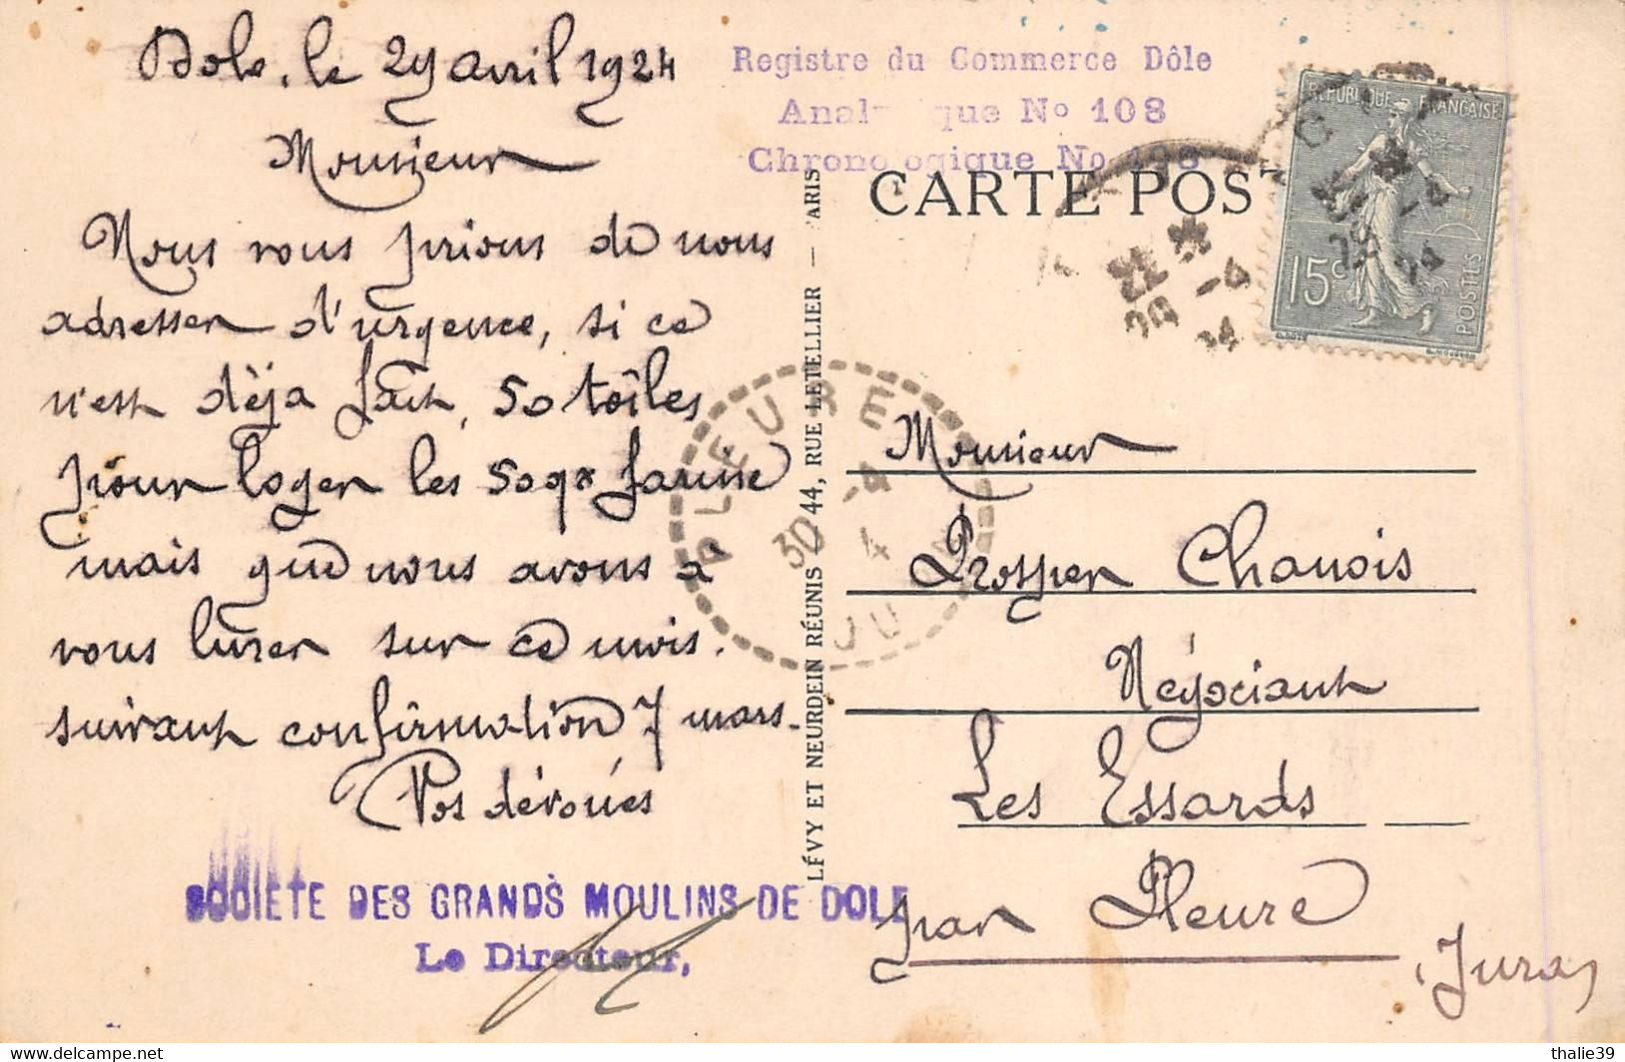 Dole, le 29 avril 1924
Monsieur
Nous vous prions de nous
adresser d'urgence, si ce
n'est dèja fait, 50 toîles
pour loger les 50 qx farine
mais que nous avons à
vous livrer sur ce mois.
suivant confirmation 7 mars.
Vos dévoués
SOCIETE DES GRANDS MOULINS DE DOLE
Le Directeur,
Registre du Commerce Dôle
Anal que No 108
Chronologique No 198
CARTE POST
RÉPUBLIQUE FRANÇAISE
15c
POSTES
22 *
29 -4
24
PLEURE
30 -4
4
JU
LÉVY ET NEURDEIN RÉUNIS 44, RUE LETELLIER — PARIS
Monsieur
Prosper Chanois
Négociant
Les Essards
par Pleure
(Jura)
thalie39